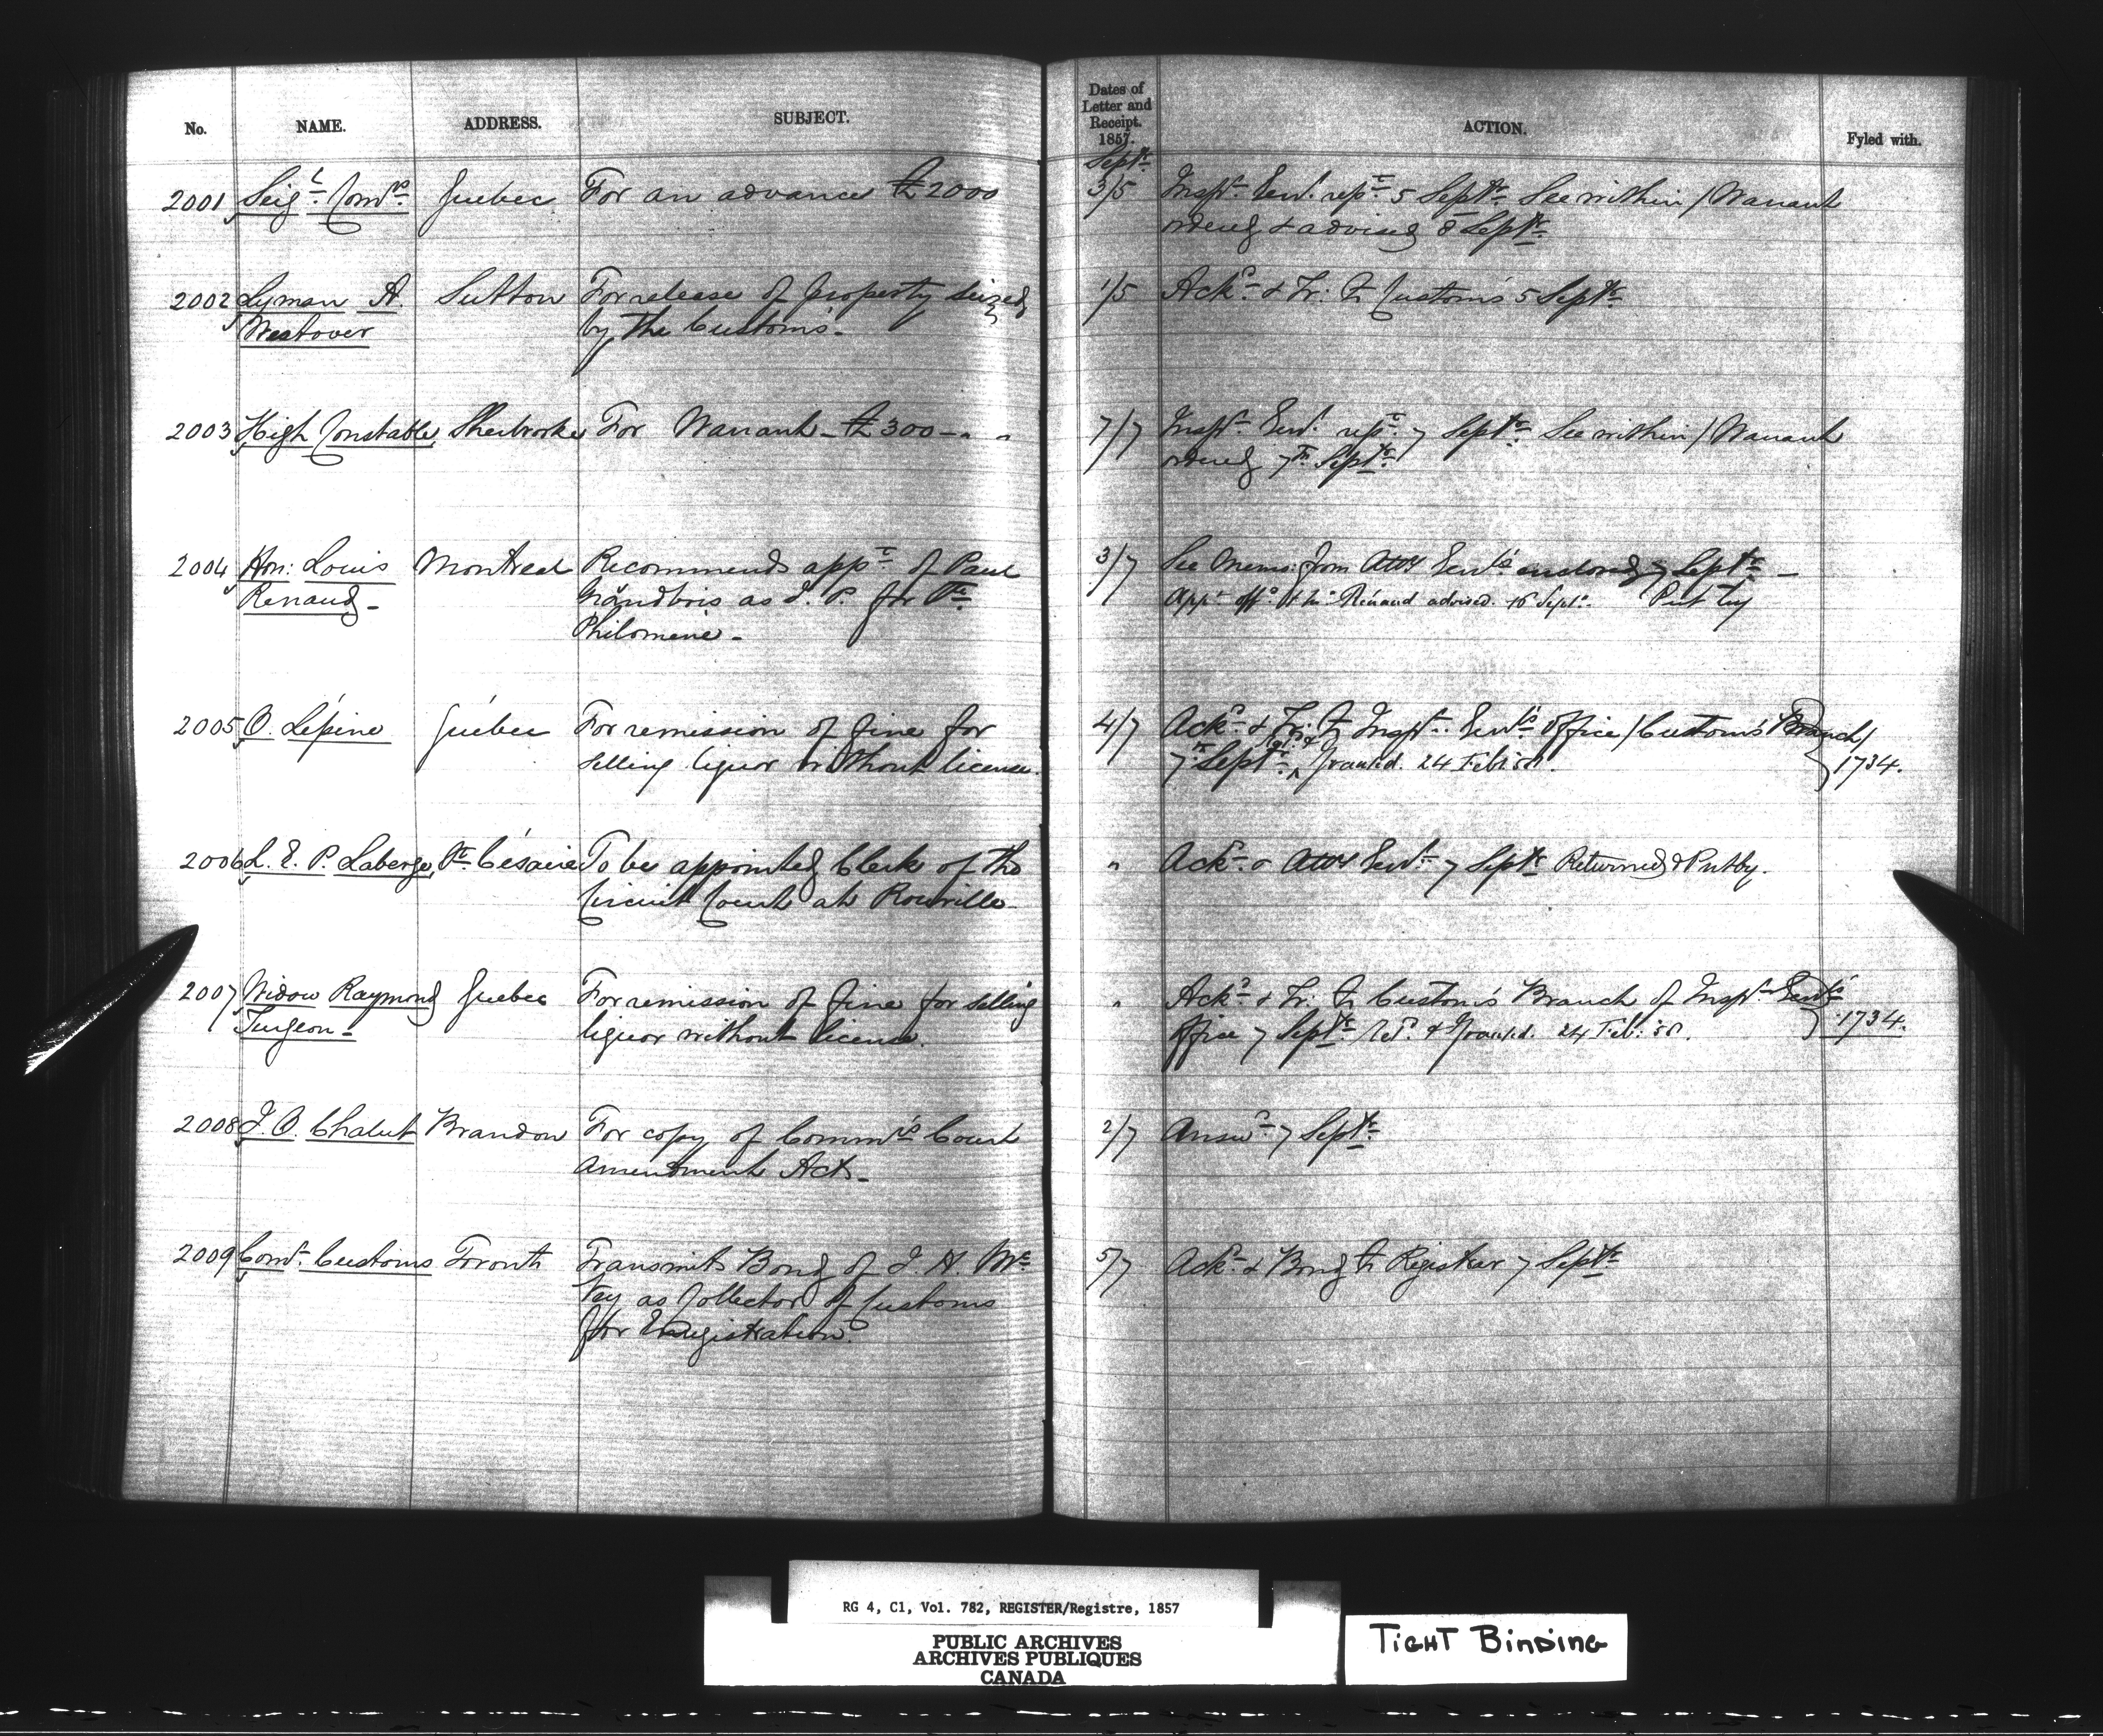 No. NAME. ADDRESS. SUBJECT. Dates of Letter and Receipt. 1857. ACTION. Fyled with.
Sept.
2001 Seig.l Com.rs Quebec For an advance £2000 3/5 Insp.r Gen.l rep.t 5 Sept.r See within / Warrant
ordered & advised 8 Sept.r
2002 Lyman A. Sutton For release of property seized 1/5 Ack.d & Tr. to Customs 5 Sept.r
Westover by the Customs.
2003 High Constable, Sherbrooke For Warrant £300 - " " 7/7 Insp.r Gen.l rep.t 7 Sept.r See within / Warrant
ordered 7th Sept.r
2004 Hon: Louis Montreal Recommends app.t of Paul 3/7 See Memo: from Atty Gen.l's enclosed 7 Sept.r
Renaud Grandbois as J. P. for St. App.t off.d & Mr. Renaud advised. 16 Sept.r Put by
Philomène
2005 O. Lépine Québec For remission of fine for 4/7 Ack.d & Tr. to Insp.r Gen.l's Office / Customs Branch /
selling liquor without license. 7 Sept.r Granted. 24 Feb: 58. 1734.
2006 L. E. P. Laberge, St. Césaire To be appointed Clerk of the " Ack.d & Atty Gen.l 7 Sept.r Returned & Put by.
Circuit Court at Rouville
2007 Widow Raymond Quebec For remission of fine for selling " Ack.d & Tr. to Customs Branch of Insp.r Gen.l's
Turgeon liquor without license. Office 7 Sept.r Ret.d & Granted. 24 Feb: 58. 1734.
2008 J. O. Chalut Brandon For copy of Comm.rs Court 2/7 Answ.d 7 Sept.r
Amendment Act
2009 Com.r Customs Toronto Transmits Bond of J. H. Mc 5/7 Ack.d & Bond to Registrar 7 Sept.r
Kay as Collector of Customs
for Enregistration.
RG 4, C1, Vol. 782, REGISTER/Registre, 1857
PUBLIC ARCHIVES
ARCHIVES PUBLIQUES
CANADA
TIGHT BINDING